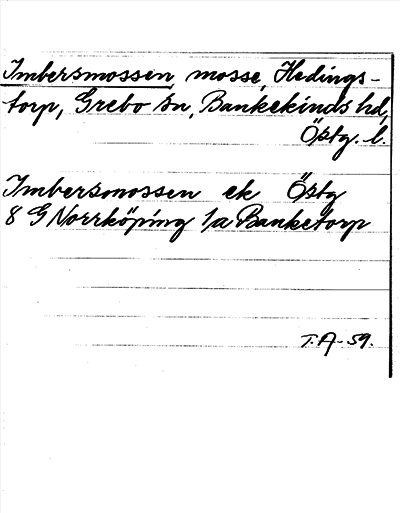 Imbersmossen, mosse, Hedings-
torp, Grebo sn, Bankekinds hd,
Östg. l.
Imbersmossen ek Östg
8 G Norrköping 1/a Banketorp
T.A-59.